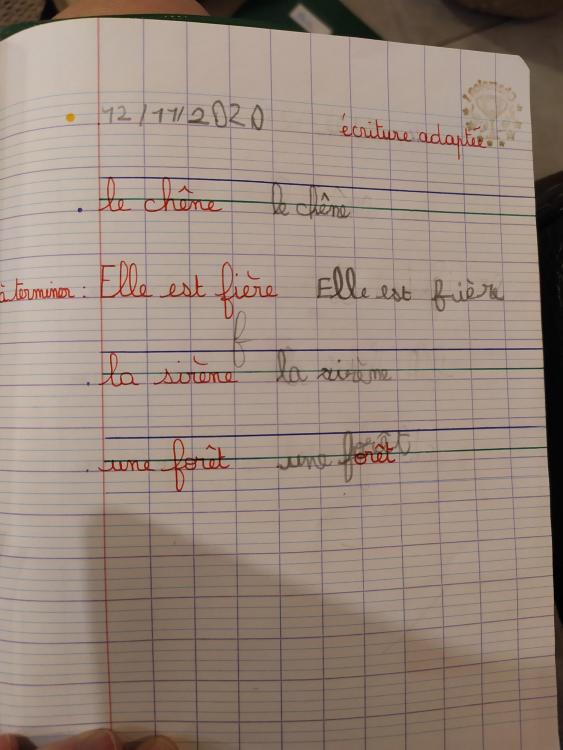 12/11/2020 écriture adaptée
le chêne le chêne
à terminer : Elle est fière Elle est fière
f
la sirène la sirène
une forêt une forêt